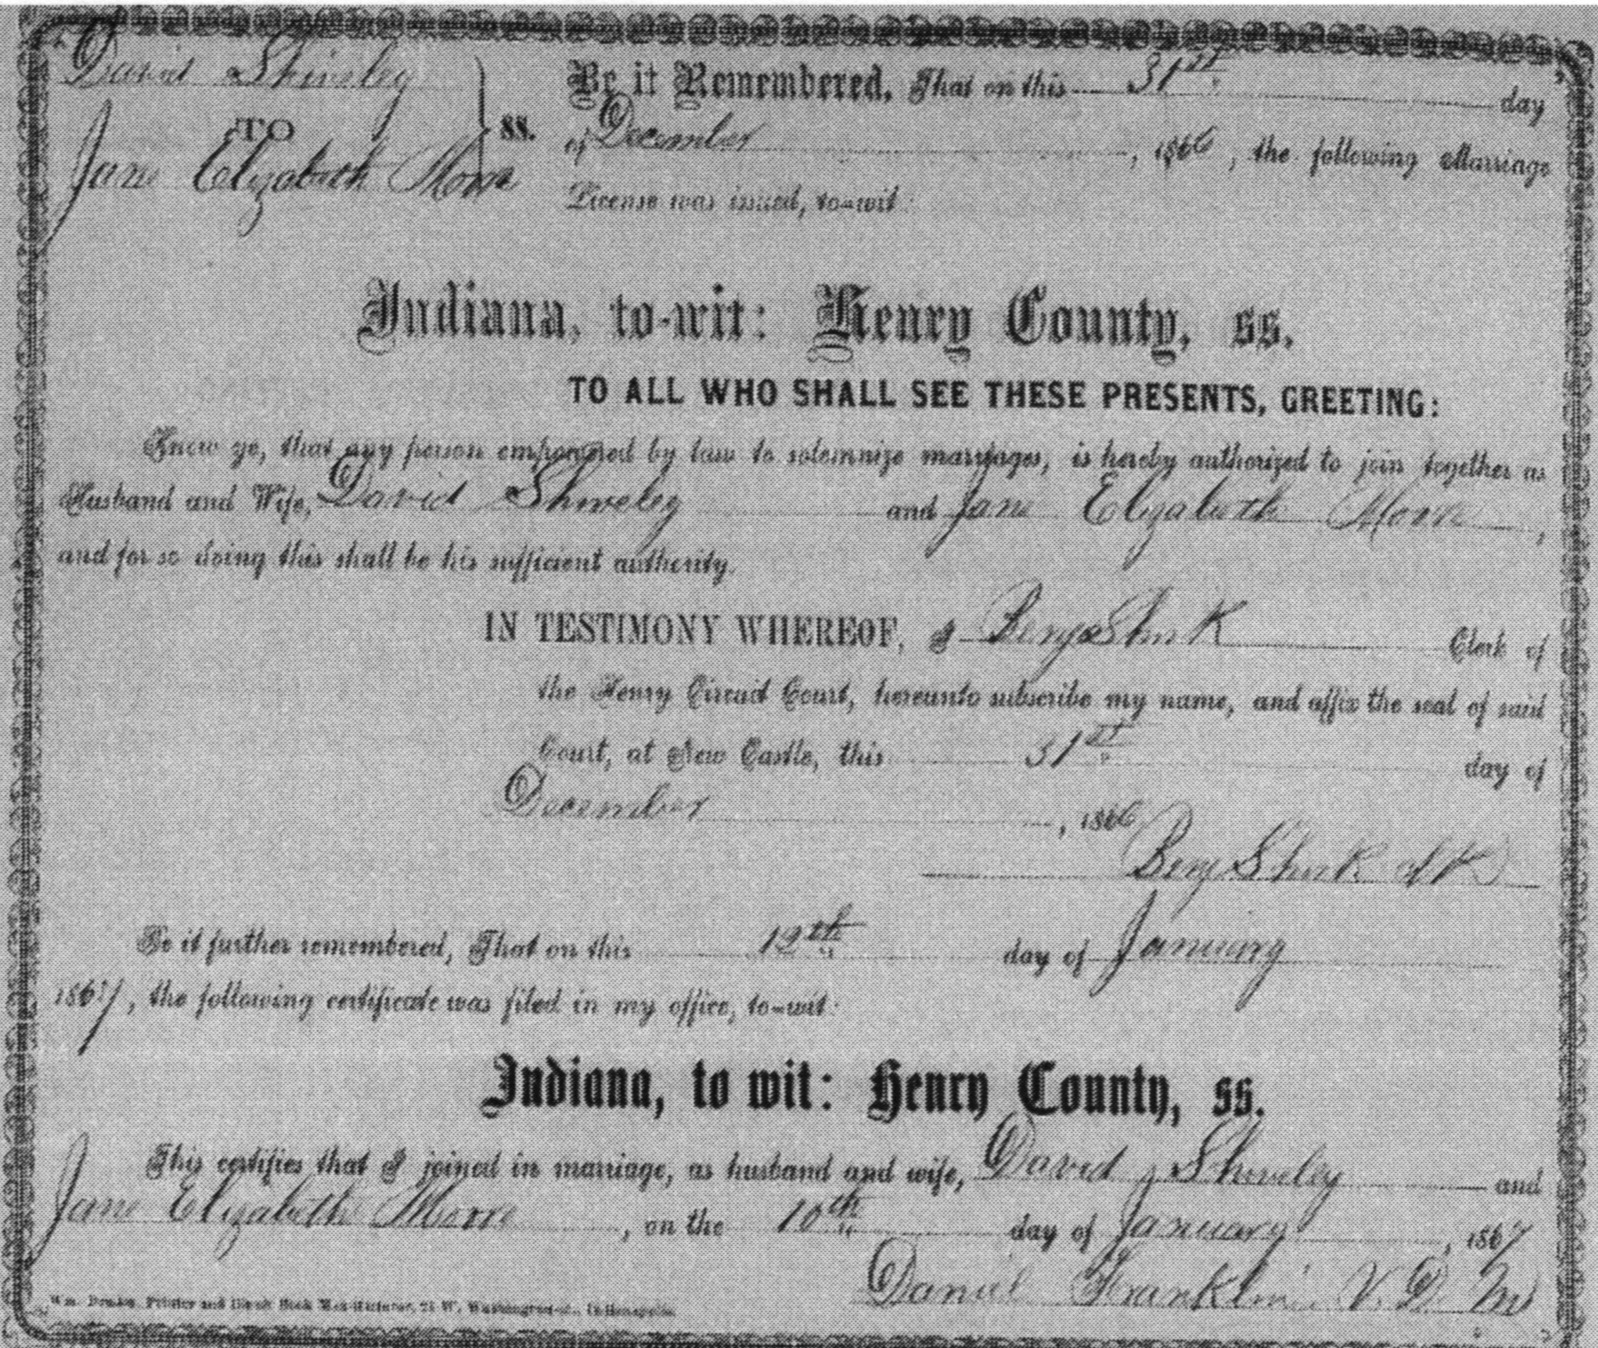 David Shiveley
TO
Jane Elizabeth Moore
ss.
Be it Remembered, That on this 31st day
of December, 1866, the following Marriage
License was issued, to-wit:
Indiana, to-wit: Henry County, ss.
TO ALL WHO SHALL SEE THESE PRESENTS, GREETING:
Know ye, that any person empowered by law to solemnize marriages, is hereby authorized to join together as
Husband and Wife, David Shiveley and Jane Elizabeth Moore,
and for so doing this shall be his sufficient authority.
IN TESTIMONY WHEREOF, I Benj Shirk Clerk of
the Henry Circuit Court, hereunto subscribe my name, and affix the seal of said
Court, at New Castle, this 31st day of
December, 1866
Benj Shirk clk
Be it further remembered, That on this 12th day of January
1867, the following certificate was filed in my office, to-wit:
Indiana, to wit: Henry County, ss.
This certifies that I joined in marriage, as husband and wife, David Shiveley and
Jane Elizabeth Moore, on the 10th day of January, 1867
Daniel Franklin V. D. M
Printer and Blank Book Manufacturer, 21 W. Washington-st., Indianapolis.